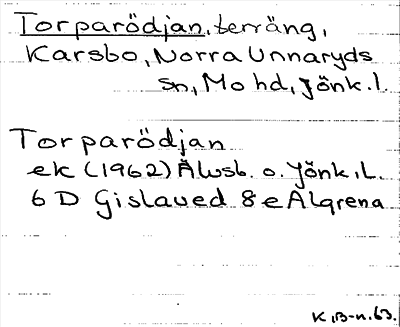 Torparödjan, terräng,
Karsbo, Norra Unnaryds
sn, Mo hd, Jönk.l.
Torparödjan
ek (1962) Älvsb. o. Jönk.l.
6 D Gislaved 8 e Algrena
K.B-n.63.